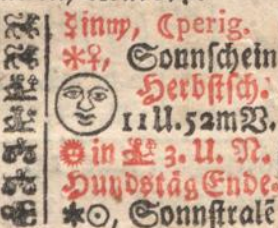 ☿inny, ☾perig.
⚹♀, Sonnſchein
Herbſtſch.
11U.52mV.
☉ in ♍ 3. U. N.
Hundstäg Ende
⚹☉, Sonnſtralē